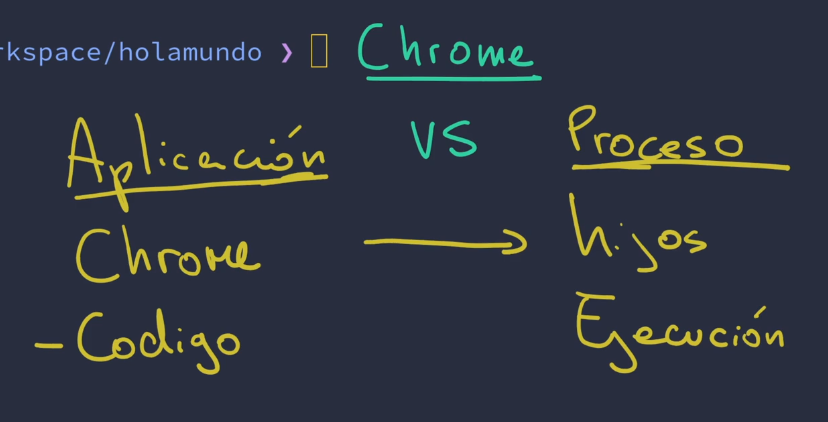 rkspace/holamundo ❯ Chrome
Aplicación vs Proceso
Chrome → hijos
- Codigo Ejecución